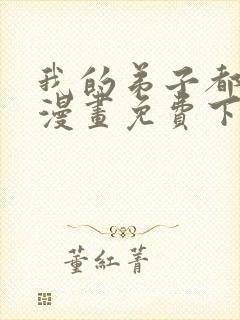 我的弟子都
漫畫免費下
董紅菁